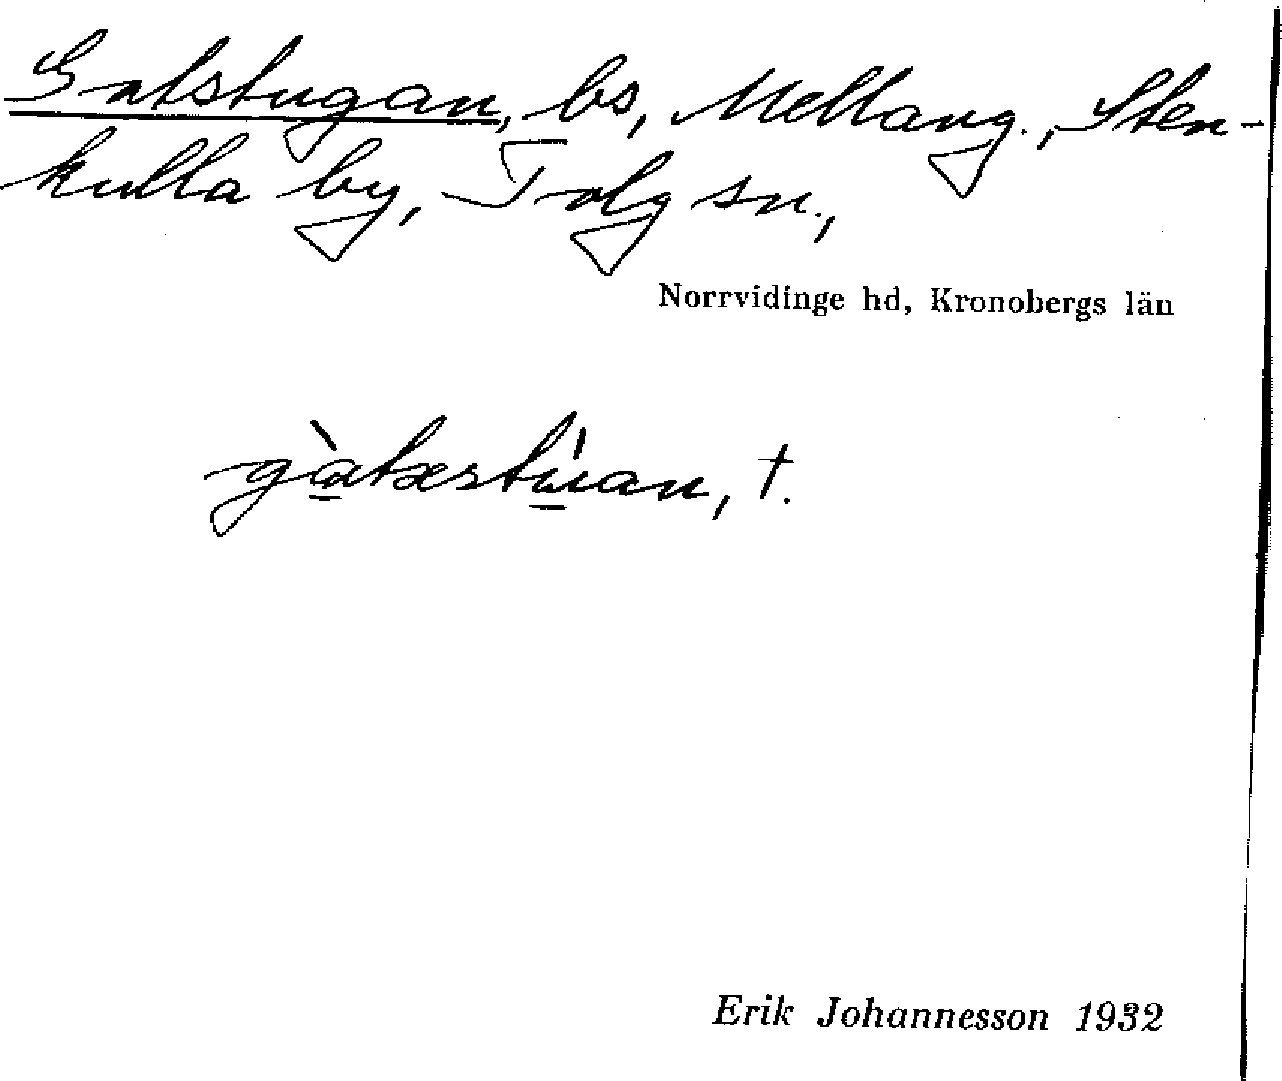 Gatstugan, bs, Mellang., Sten-
kulla by, Tolg sn.,
Norrvidinge hd, Kronobergs län
gàtsestúan, †.
Erik Johannesson 1932